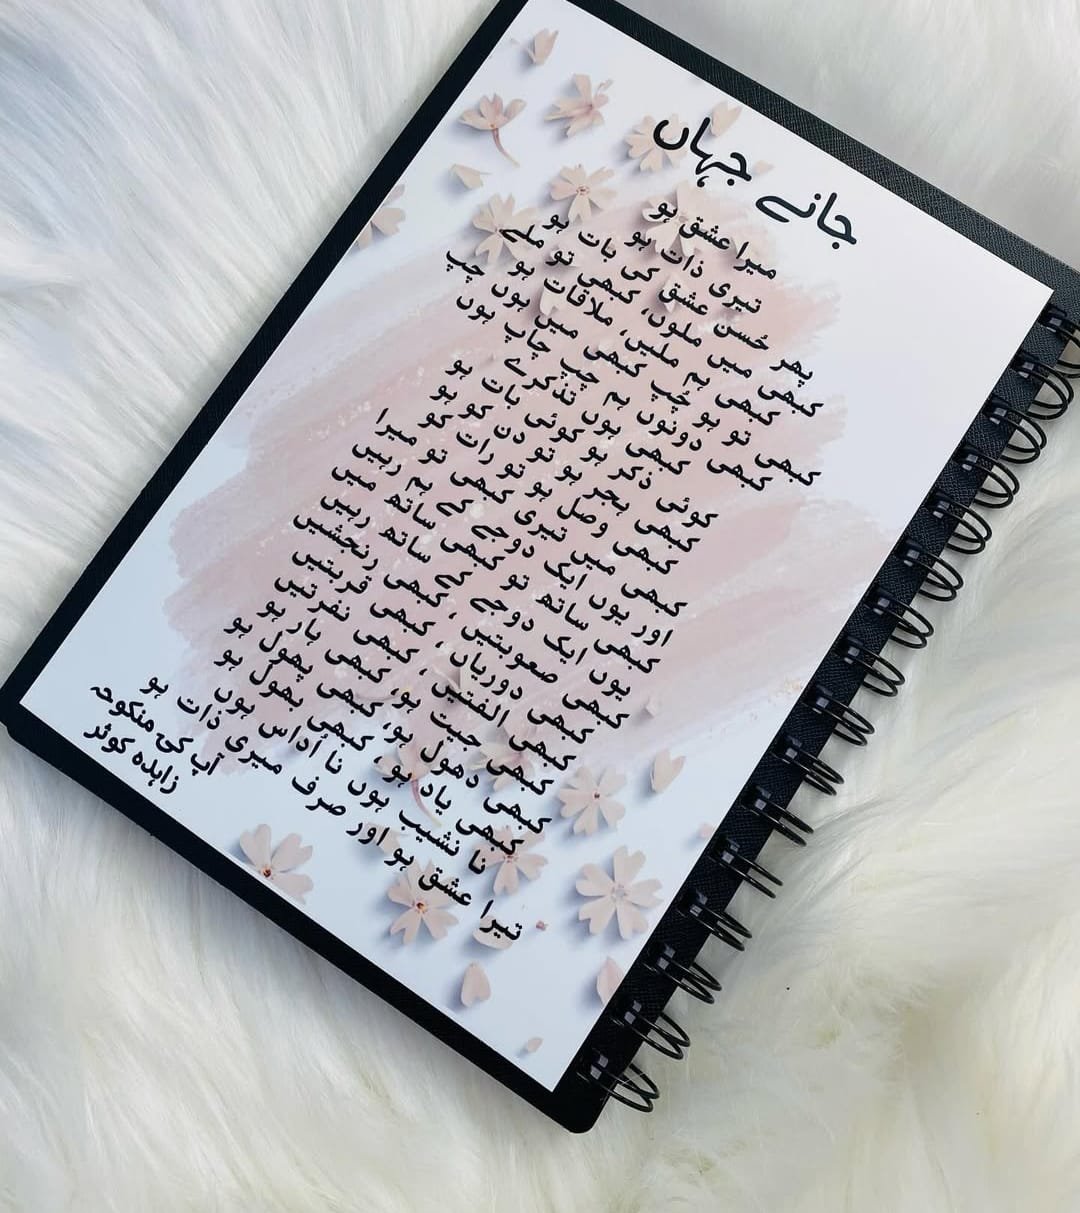 جانے جہاں
میرا عشق ہو
تیری ذات ہو
پھر حُسن عشق کی بات ہو
کبھی میں ملوں، کبھی تو ملے
کبھی ہم ملیں، ملاقات ہو
کبھی تو ہو چپ کبھی میں ہوں چپ
کبھی دونوں ہم چپ چاپ ہوں
کبھی ہوں تذکرے
کوئی ذکر ہو کوئی بات ہو
کبھی ہجر ہو تو دن کو ہو
کبھی وصل ہو تو رات کو
کبھی میں تیری کبھی تو میرا
اور یوں ایک دوجے کے ہم رہیں
کبھی ساتھ تو کبھی ساتھ میں
یوں ایک دوجے کے ساتھ رہیں
کبھی صعوبتیں، کبھی رنجشیں
کبھی دوریاں، کبھی قربتیں
کبھی الفتیں، کبھی نفرتیں
کبھی جیت ہو، کبھی ہار ہو
کبھی دھول ہو، کبھی پھول ہو
کبھی یاد ہو، کبھی بھول ہو
نا نشیب ہوں نا اُداس ہوں
تیرا عشق ہو اور صرف میری ذات ہو
آپ کی منکوحہ
زاہدہ کوثر